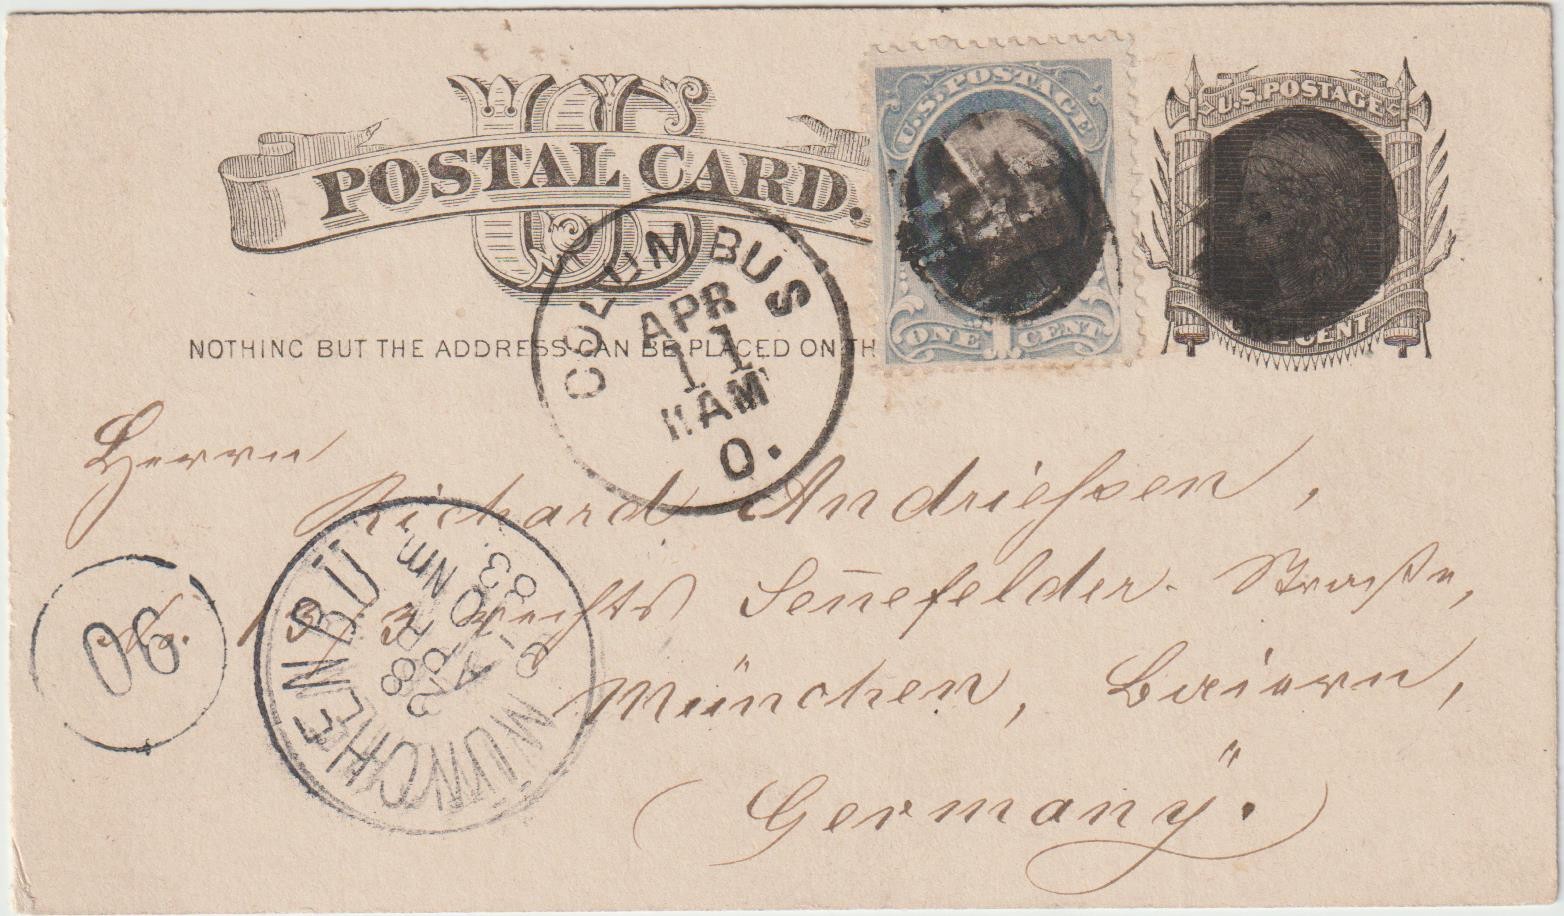 U.S. POSTAGE
U.S. POSTAGE
POSTAL CARD.
US
ONE 1 CENT
ONE CENT
NOTHING BUT THE ADDRESS CAN BE PLACED ON TH
COLUMBUS
APR
11
AM
O.
Herrn
Richard Andrießen,
No. 13. 3 rechts Senefelder-Straße,
München, Baiern,
(Germany.)
MÜNCHEN B II
28
APR
Nm.
83.
90